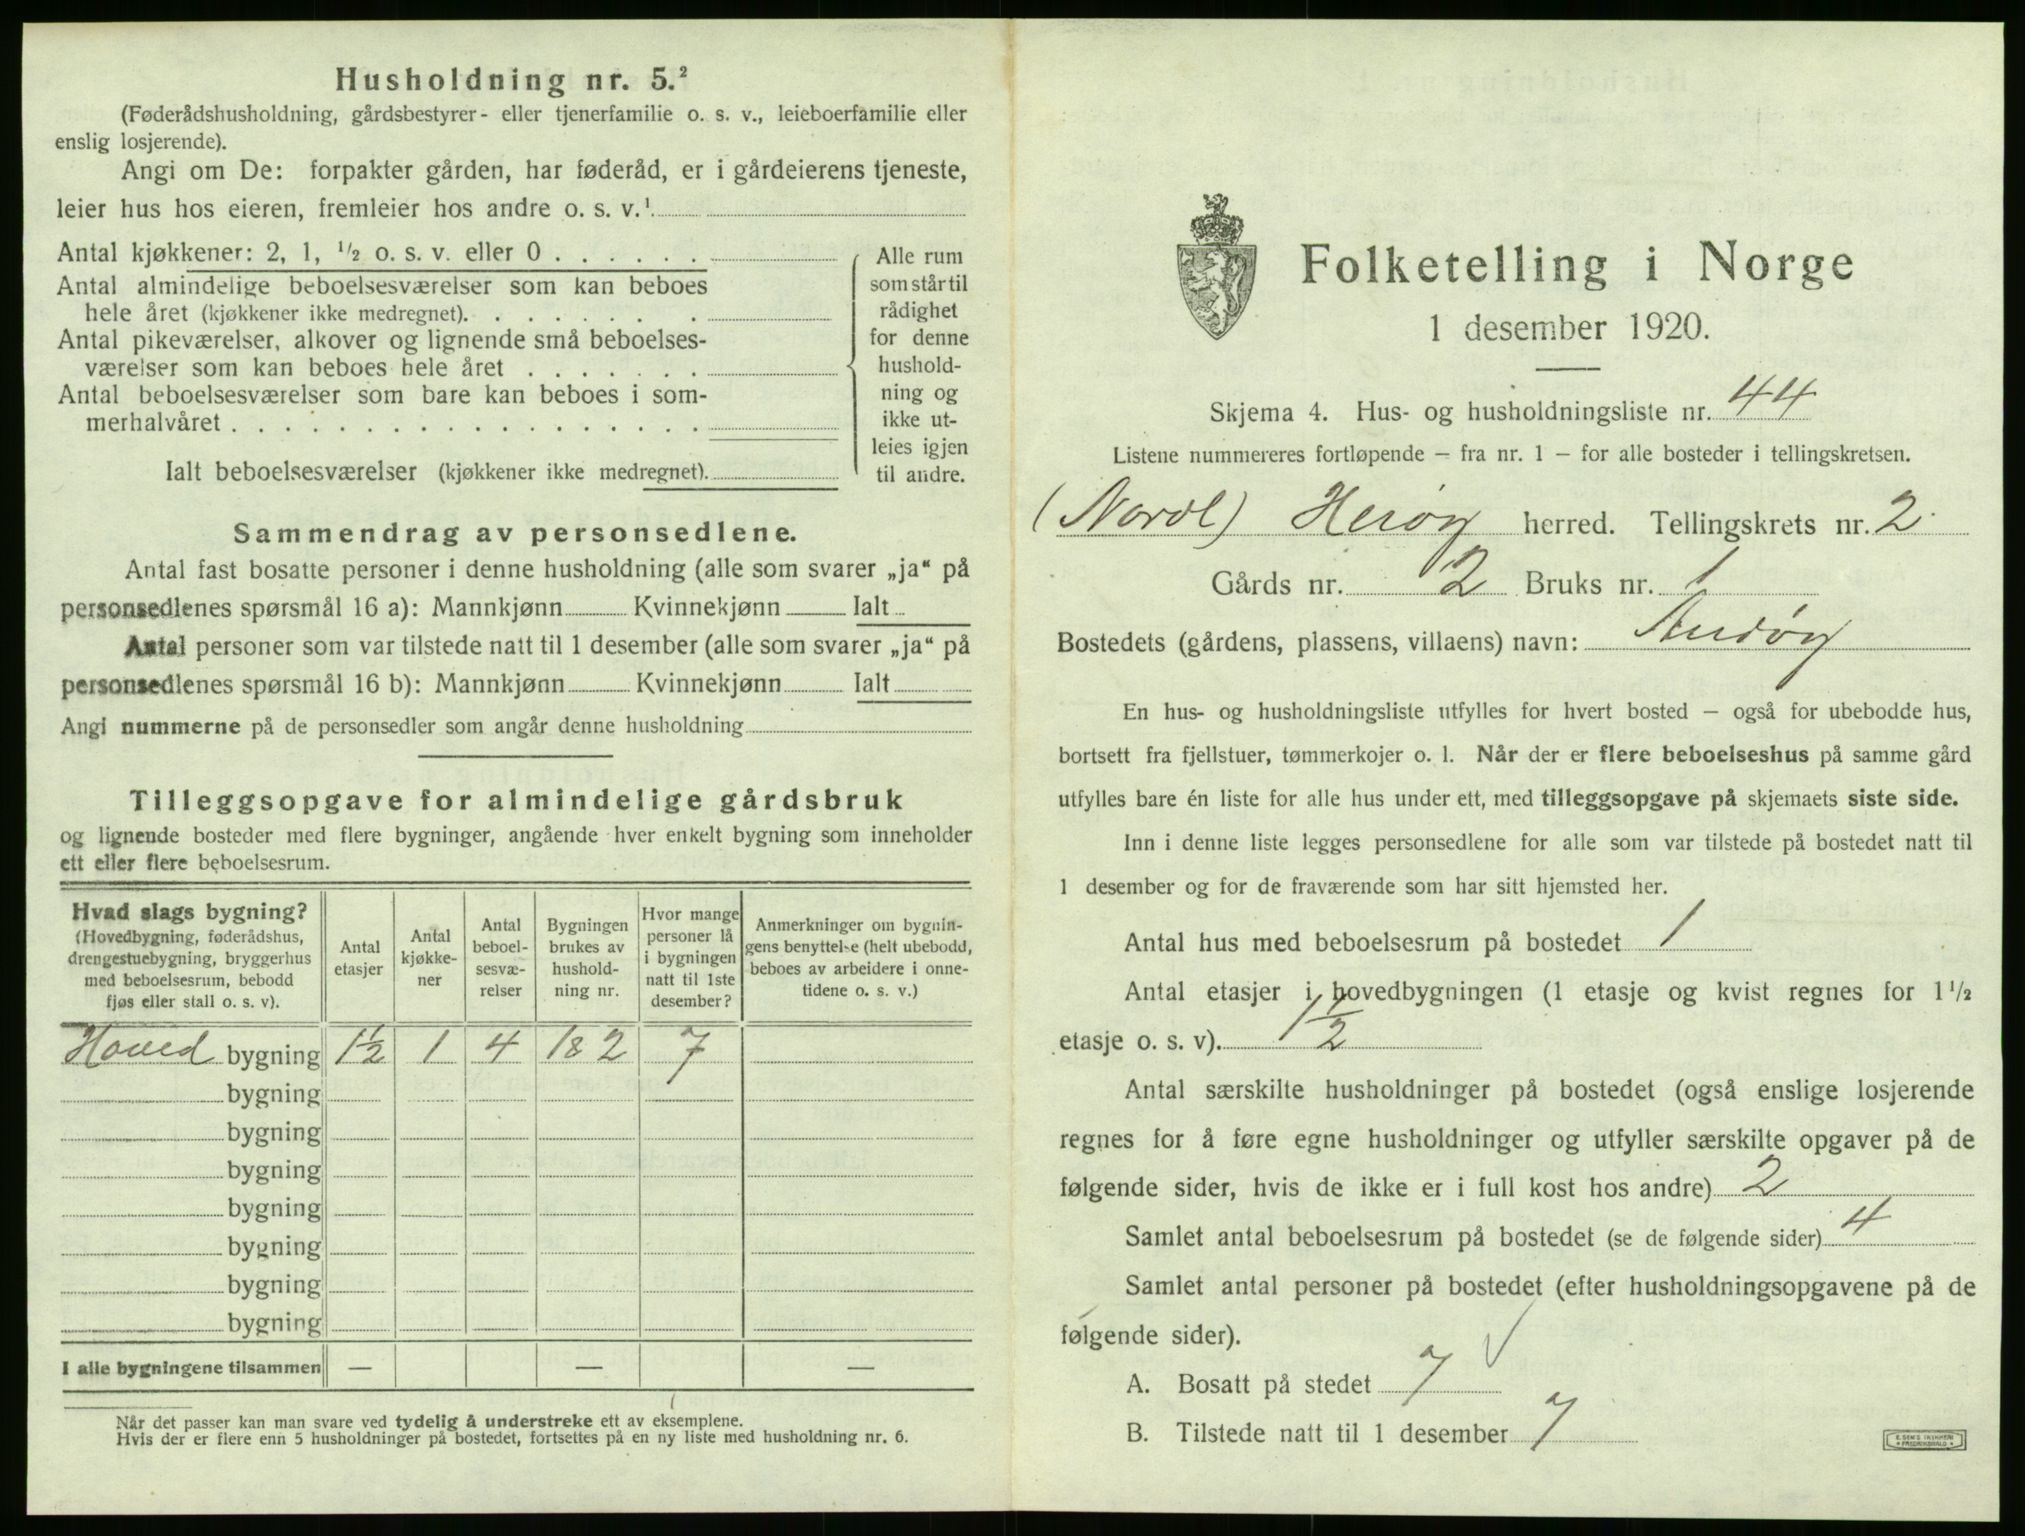 Husholdning nr. 5.²
(Føderådshusholdning, gårdsbestyrer- eller tjenerfamilie o. s. v., leieboerfamilie eller
enslig losjerende).
Angi om De: forpakter gården, har føderåd, er i gårdeierens tjeneste,
leier hus hos eieren, fremleier hos andre o. s. v.¹
Antal kjøkkener: 2, 1, ¹/₂ o. s. v. eller 0 . . . . . .
Antal almindelige beboelsesværelser som kan beboes
hele året (kjøkkener ikke medregnet). . . . . . . .
Antal pikeværelser, alkover og lignende små beboelses-
værelser som kan beboes hele året . . . . . . .
Antal beboelsesværelser som bare kan beboes i som-
merhalvåret . . . . . . . . . . . . . . . . . .
Ialt beboelsesværelser (kjøkkener ikke medregnet).
Alle rum
som står til
rådighet
for denne
hushold-
ning og
ikke ut-
leies igjen
til andre.
Sammendrag av personsedlene.
Antal fast bosatte personer i denne husholdning (alle som svarer „ja“ på
personsedlenes spørsmål 16 a): Mannkjønn Kvinnekjønn Ialt
Antal personer som var tilstede natt til 1 desember (alle som svarer „ja“ på
personsedlenes spørsmål 16 b): Mannkjønn Kvinnekjønn Ialt
Angi nummerne på de personsedler som angår denne husholdning
Tilleggsopgave for almindelige gårdsbruk
og lignende bosteder med flere bygninger, angående hver enkelt bygning som inneholder
ett eller flere beboelsesrum.
Hvad slags bygning?
(Hovedbygning, føderådshus,
drengestuebygning, bryggerhus
med beboelsesrum, bebodd
fjøs eller stall o. s. v).
Antal
etasjer
Antal
kjøkke-
ner
Antal
beboel-
sesvæ-
relser
Bygningen
brukes av
hushold-
ning nr.
Hvor mange
personer lå
i bygningen
natt til 1ste
desember?
Anmerkninger om bygnin-
gens benyttelse (helt ubebodd,
beboes av arbeidere i onne-
tidene o. s. v.)
Hoved bygning 1½ 1 4 1&2 7
bygning
bygning
bygning
bygning
bygning
bygning
bygning
I alle bygningene tilsammen — — —
Når det passer kan man svare ved tydelig å understreke ett av eksemplene.
Hvis der er flere enn 5 husholdninger på bostedet, fortsettes på en ny liste med husholdning nr. 6.
Folketelling i Norge
1 desember 1920.
Skjema 4. Hus- og husholdningsliste nr. 44
Listene nummereres fortløpende – fra nr. 1 – for alle bosteder i tellingskretsen.
(Nordl) Herøy herred. Tellingskrets nr. 2
Gårds nr. 2 Bruks nr. 1
Bostedets (gårdens, plassens, villaens) navn: Andøy
En hus- og husholdningsliste utfylles for hvert bosted – også for ubebodde hus,
bortsett fra fjellstuer, tømmerkojer o. l. Når der er flere beboelseshus på samme gård
utfylles bare én liste for alle hus under ett, med tilleggsopgave på skjemaets siste side.
Inn i denne liste legges personsedlene for alle som var tilstede på bostedet natt til
1 desember og for de fraværende som har sitt hjemsted her.
Antal hus med beboelsesrum på bostedet 1
Antal etasjer i hovedbygningen (1 etasje og kvist regnes for 1¹/₂
etasje o. s. v). 1½
Antal særskilte husholdninger på bostedet (også enslige losjerende
regnes for å føre egne husholdninger og utfyller særskilte opgaver på de
følgende sider, hvis de ikke er i full kost hos andre) 2
Samlet antal beboelsesrum på bostedet (se de følgende sider) 4
Samlet antal personer på bostedet (efter husholdningsopgavene på de
følgende sider).
A. Bosatt på stedet 7
B. Tilstede natt til 1 desember 7